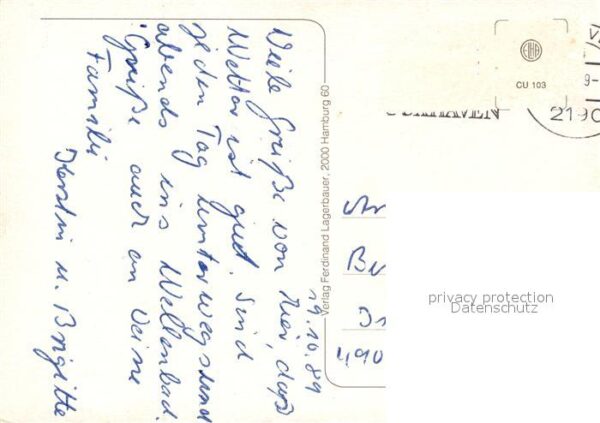 19.10.89
Viele Grüße von hier, das
Wetter ist gut. Sind
jeden Tag unterwegs und
abends ins Wellenbad.
Grüße auch an Deine
Familie
Kerstin u. Brigitte
Verlag Ferdinand Lagerbauer, 2000 Hamburg 60
CU 103
2190
9-
490
privacy protection
Datenschutz